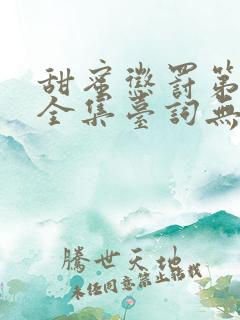 甜蜜懲罰第
全集臺詞無
騰世天地
未经同意禁止转载